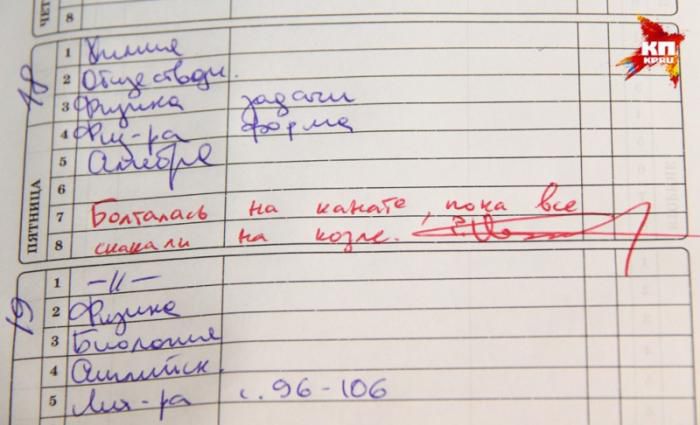 ЧЕТ
8
КП
КРИЦ
18
ПЯТНИЦА
1 Химия
2 Обществозн.
3 Физика задачи
4 Физ-ра форма
5 Алгебра
6
7 Болталась на канате, пока все
8 скакали на козле.
19
1 –//–
2 Физика
3 Биология
4 Английск.
5 Лит-ра с. 96-106